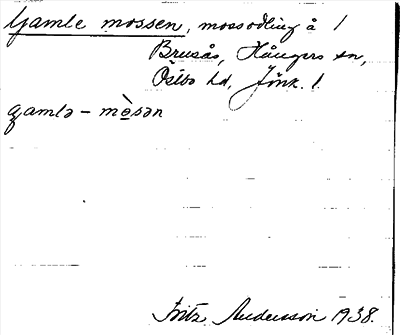 Gamle mossen, mossodling å 1
Brusås, Hångers sn,
Östbo hd, Jönk. l.
gamlə – mòsən
Fritz Andersson 1938.